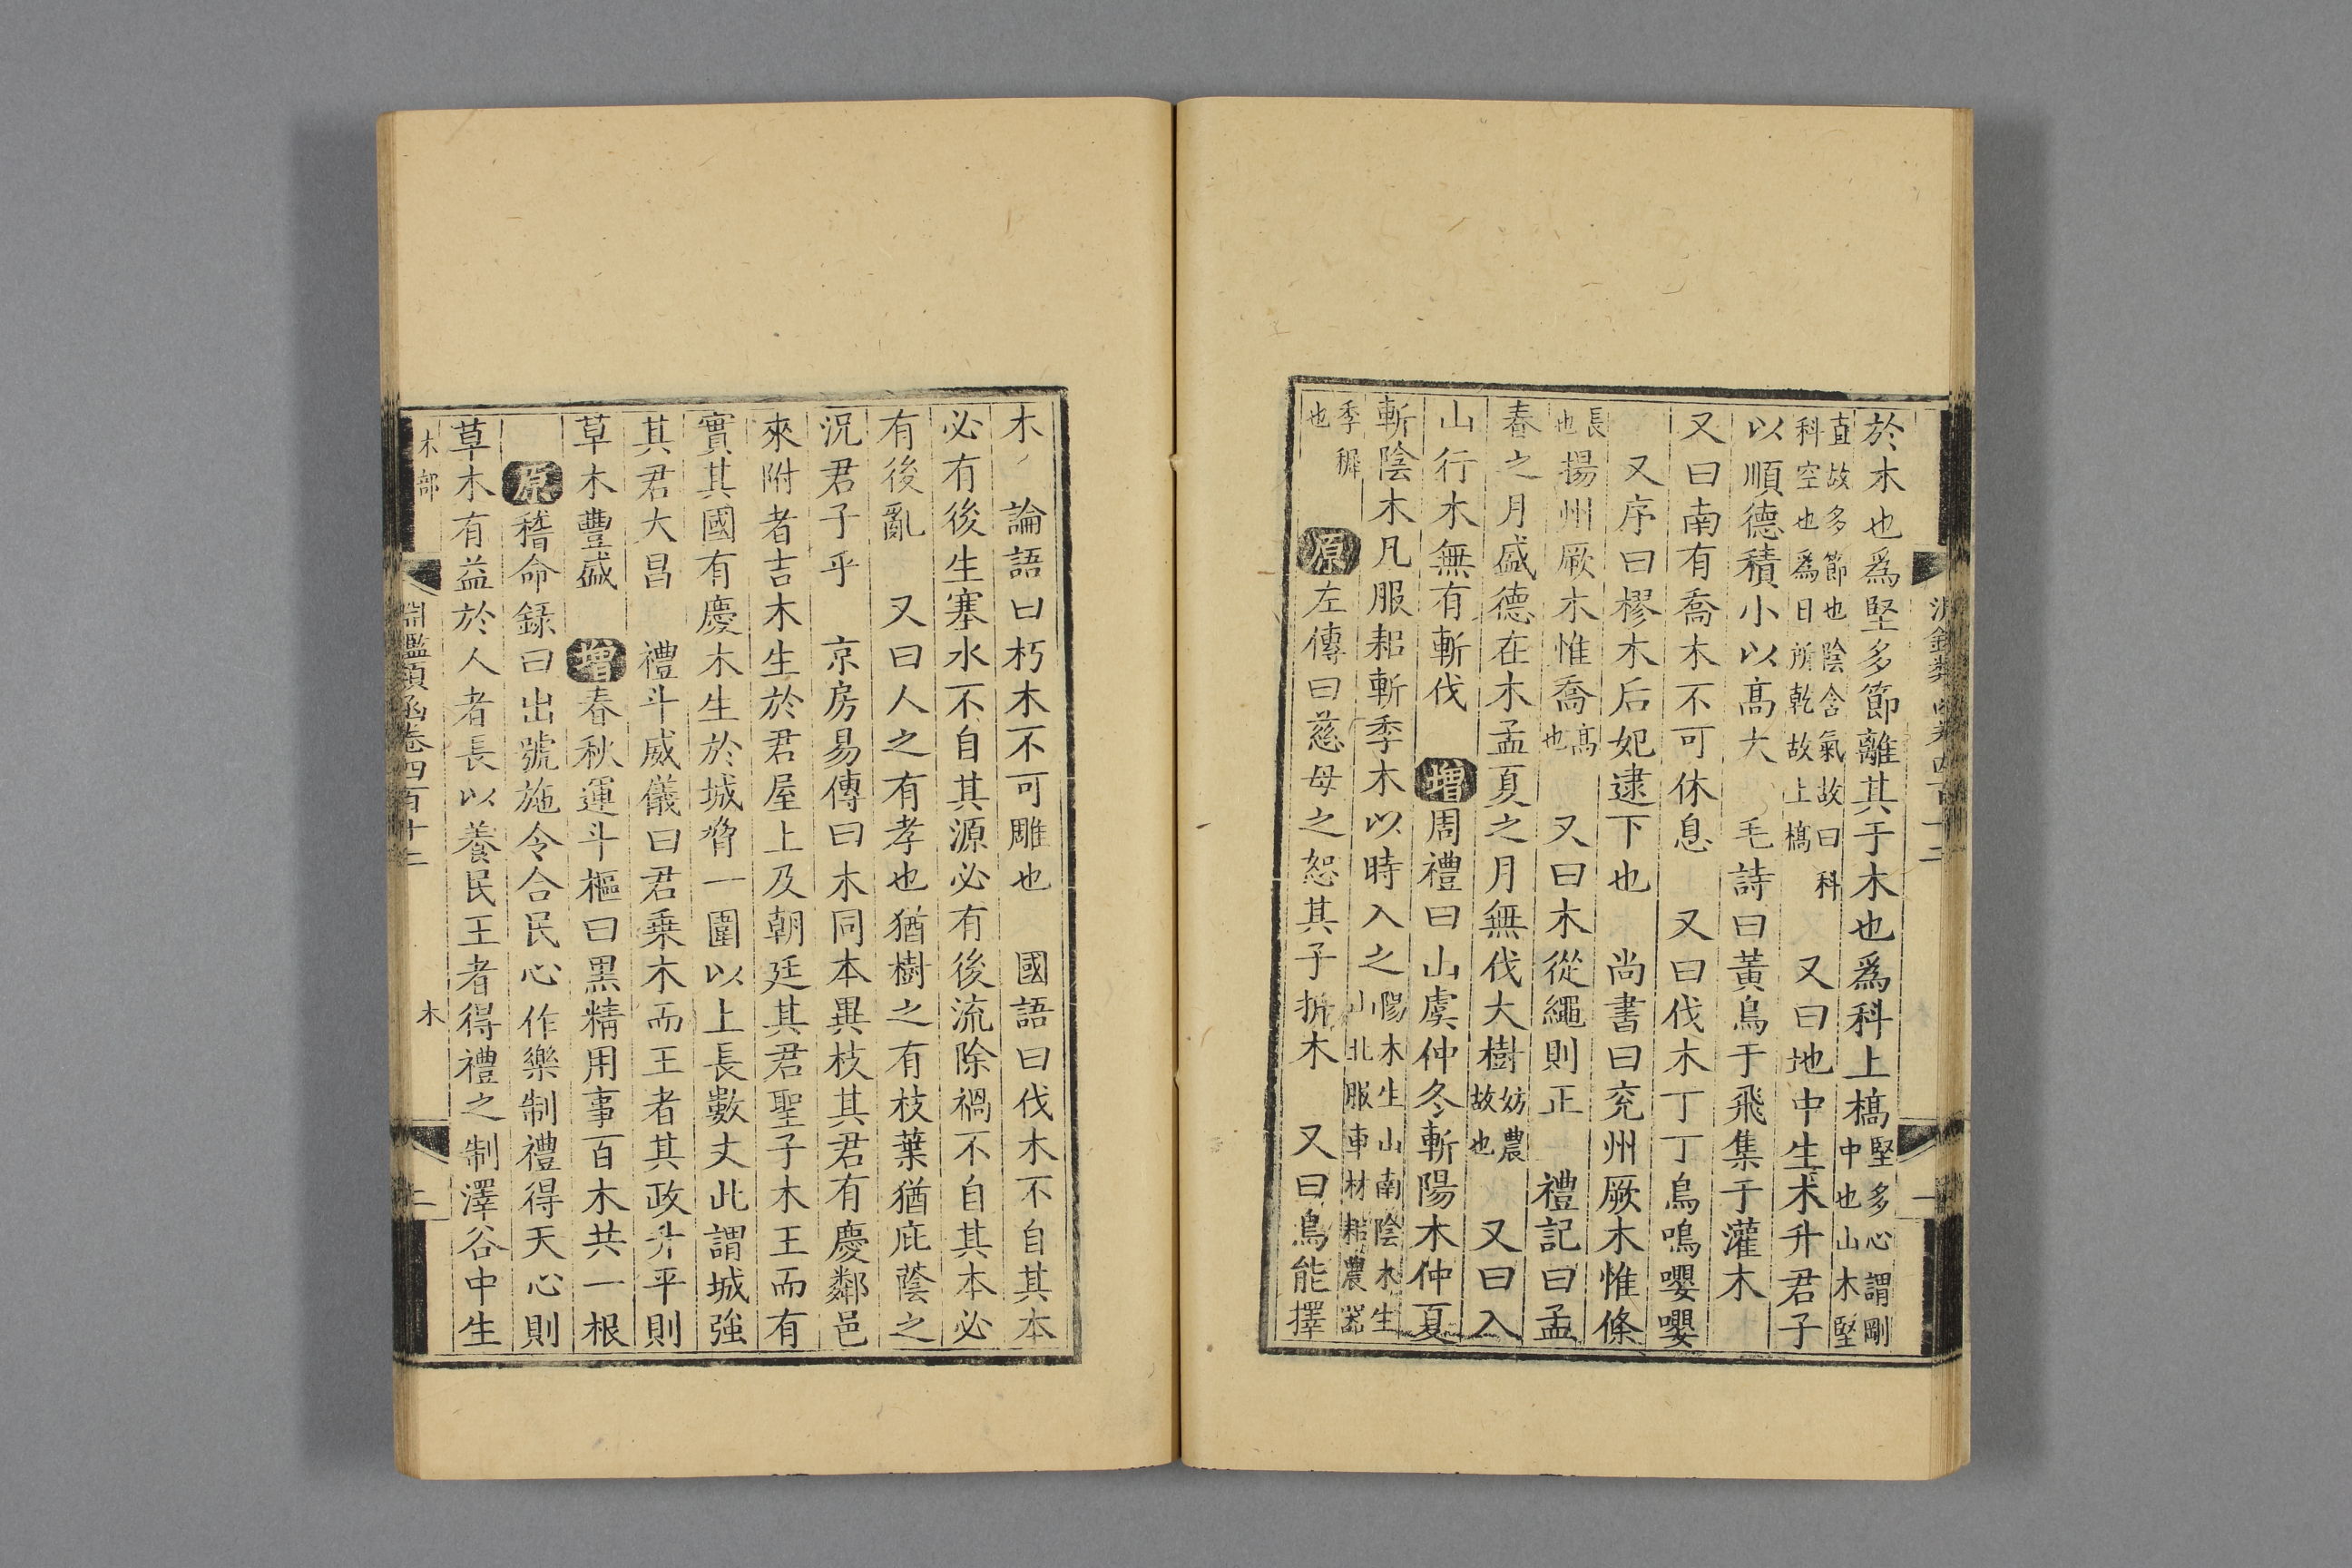 於木也爲堅多節離其于木也爲科上槁堅多心謂剛中也山木堅
直故多節也陰含氣故曰科科空也爲日所乾故上槁　又曰地中生木升君子
以順德積小以高大　毛詩曰黃鳥于飛集于灌木
又曰南有喬木不可休息　又曰伐木丁丁鳥鳴嚶嚶
又序曰樛木后妃逮下也　尚書曰兖州厥木惟條
長也揚州厥木惟喬高也　又曰木從繩則正　禮記曰孟
春之月盛德在木孟夏之月無伐大樹妨農故也　又曰入
山行木無有斬伐　增周禮曰山虞仲冬斬陽木仲夏
斬陰木凡服耜斬季木以時入之陽木生山南陰木生山北服車材耜農器
季穉也　原左傳曰慈母之恕其子折木　又曰鳥能擇
淵鑑類函卷四百十二　一
木　論語曰朽木不可雕也　國語曰伐木不自其本
必有後生塞水不自其源必有後流除禍不自其本必
有後亂　又曰人之有孝也猶樹之有枝葉猶庇蔭之
況君子乎　京房易傳曰木同本異枝其君有慶鄰邑
來附者吉木生於君屋上及朝廷其君聖子木王而有
實其國有慶木生於城脅一圍以上長數丈此謂城強
其君大昌　禮斗威儀曰君乗木而王者其政升平則
草木豐盛　增春秋運斗樞曰黑精用事百木共一根
原稽命録曰出號施令合民心作樂制禮得天心則
草木有益於人者長以養民王者得禮之制澤谷中生
木部　淵鑑類函卷四百十二　木　二